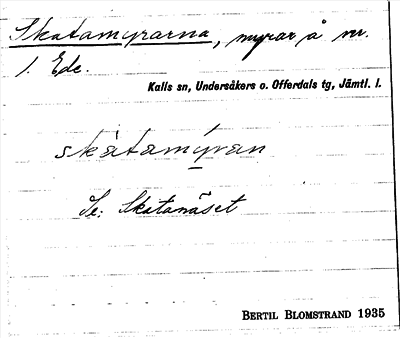 Skatamyrarna, myrar å nr.
1. Ede.
Kalls sn, Undersåkers o. Offerdals tg, Jämtl. l.
skàtamýran
Se: Skatanäset
BERTIL BLOMSTRAND 1935